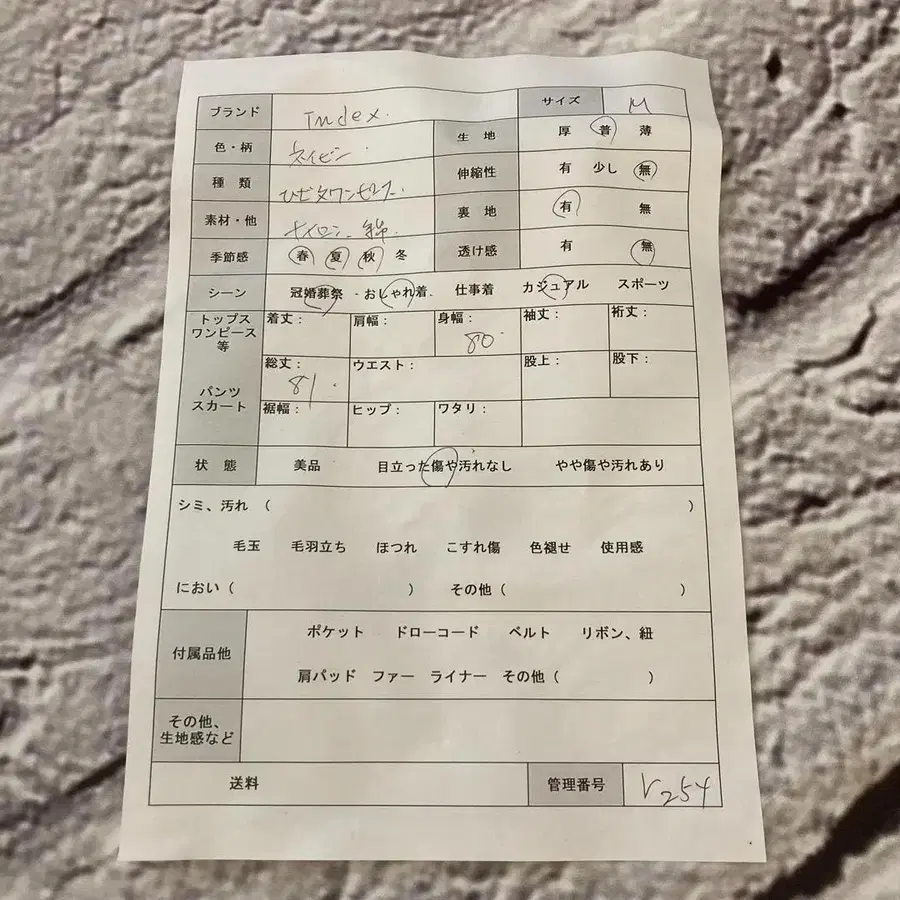 ブランド Index. サイズ M
色・柄 ネイビー 生地 厚 普 薄
種類 ひざ丈ワンピース. 伸縮性 有 少し 無
素材・他 ナイロン 綿 裏地 有 無
季節感 春 夏 秋 冬 透け感 有 無
シーン 冠婚葬祭 ・おしゃれ着. 仕事着 カジュアル スポーツ
トップス
ワンピース
等
着丈： 肩幅： 身幅： 80 袖丈： 裄丈：
パンツ
スカート
総丈： 81 ウエスト： 股上： 股下：
裾幅： ヒップ： ワタリ：
状態 美品 目立った傷や汚れなし やや傷や汚れあり
シミ、汚れ（ ）
毛玉 毛羽立ち ほつれ こすれ傷 色褪せ 使用感
におい（ ） その他（ ）
付属品他 ポケット ドローコード ベルト リボン、紐
肩パッド ファー ライナー その他（ ）
その他、
生地感など
送料 管理番号 V254